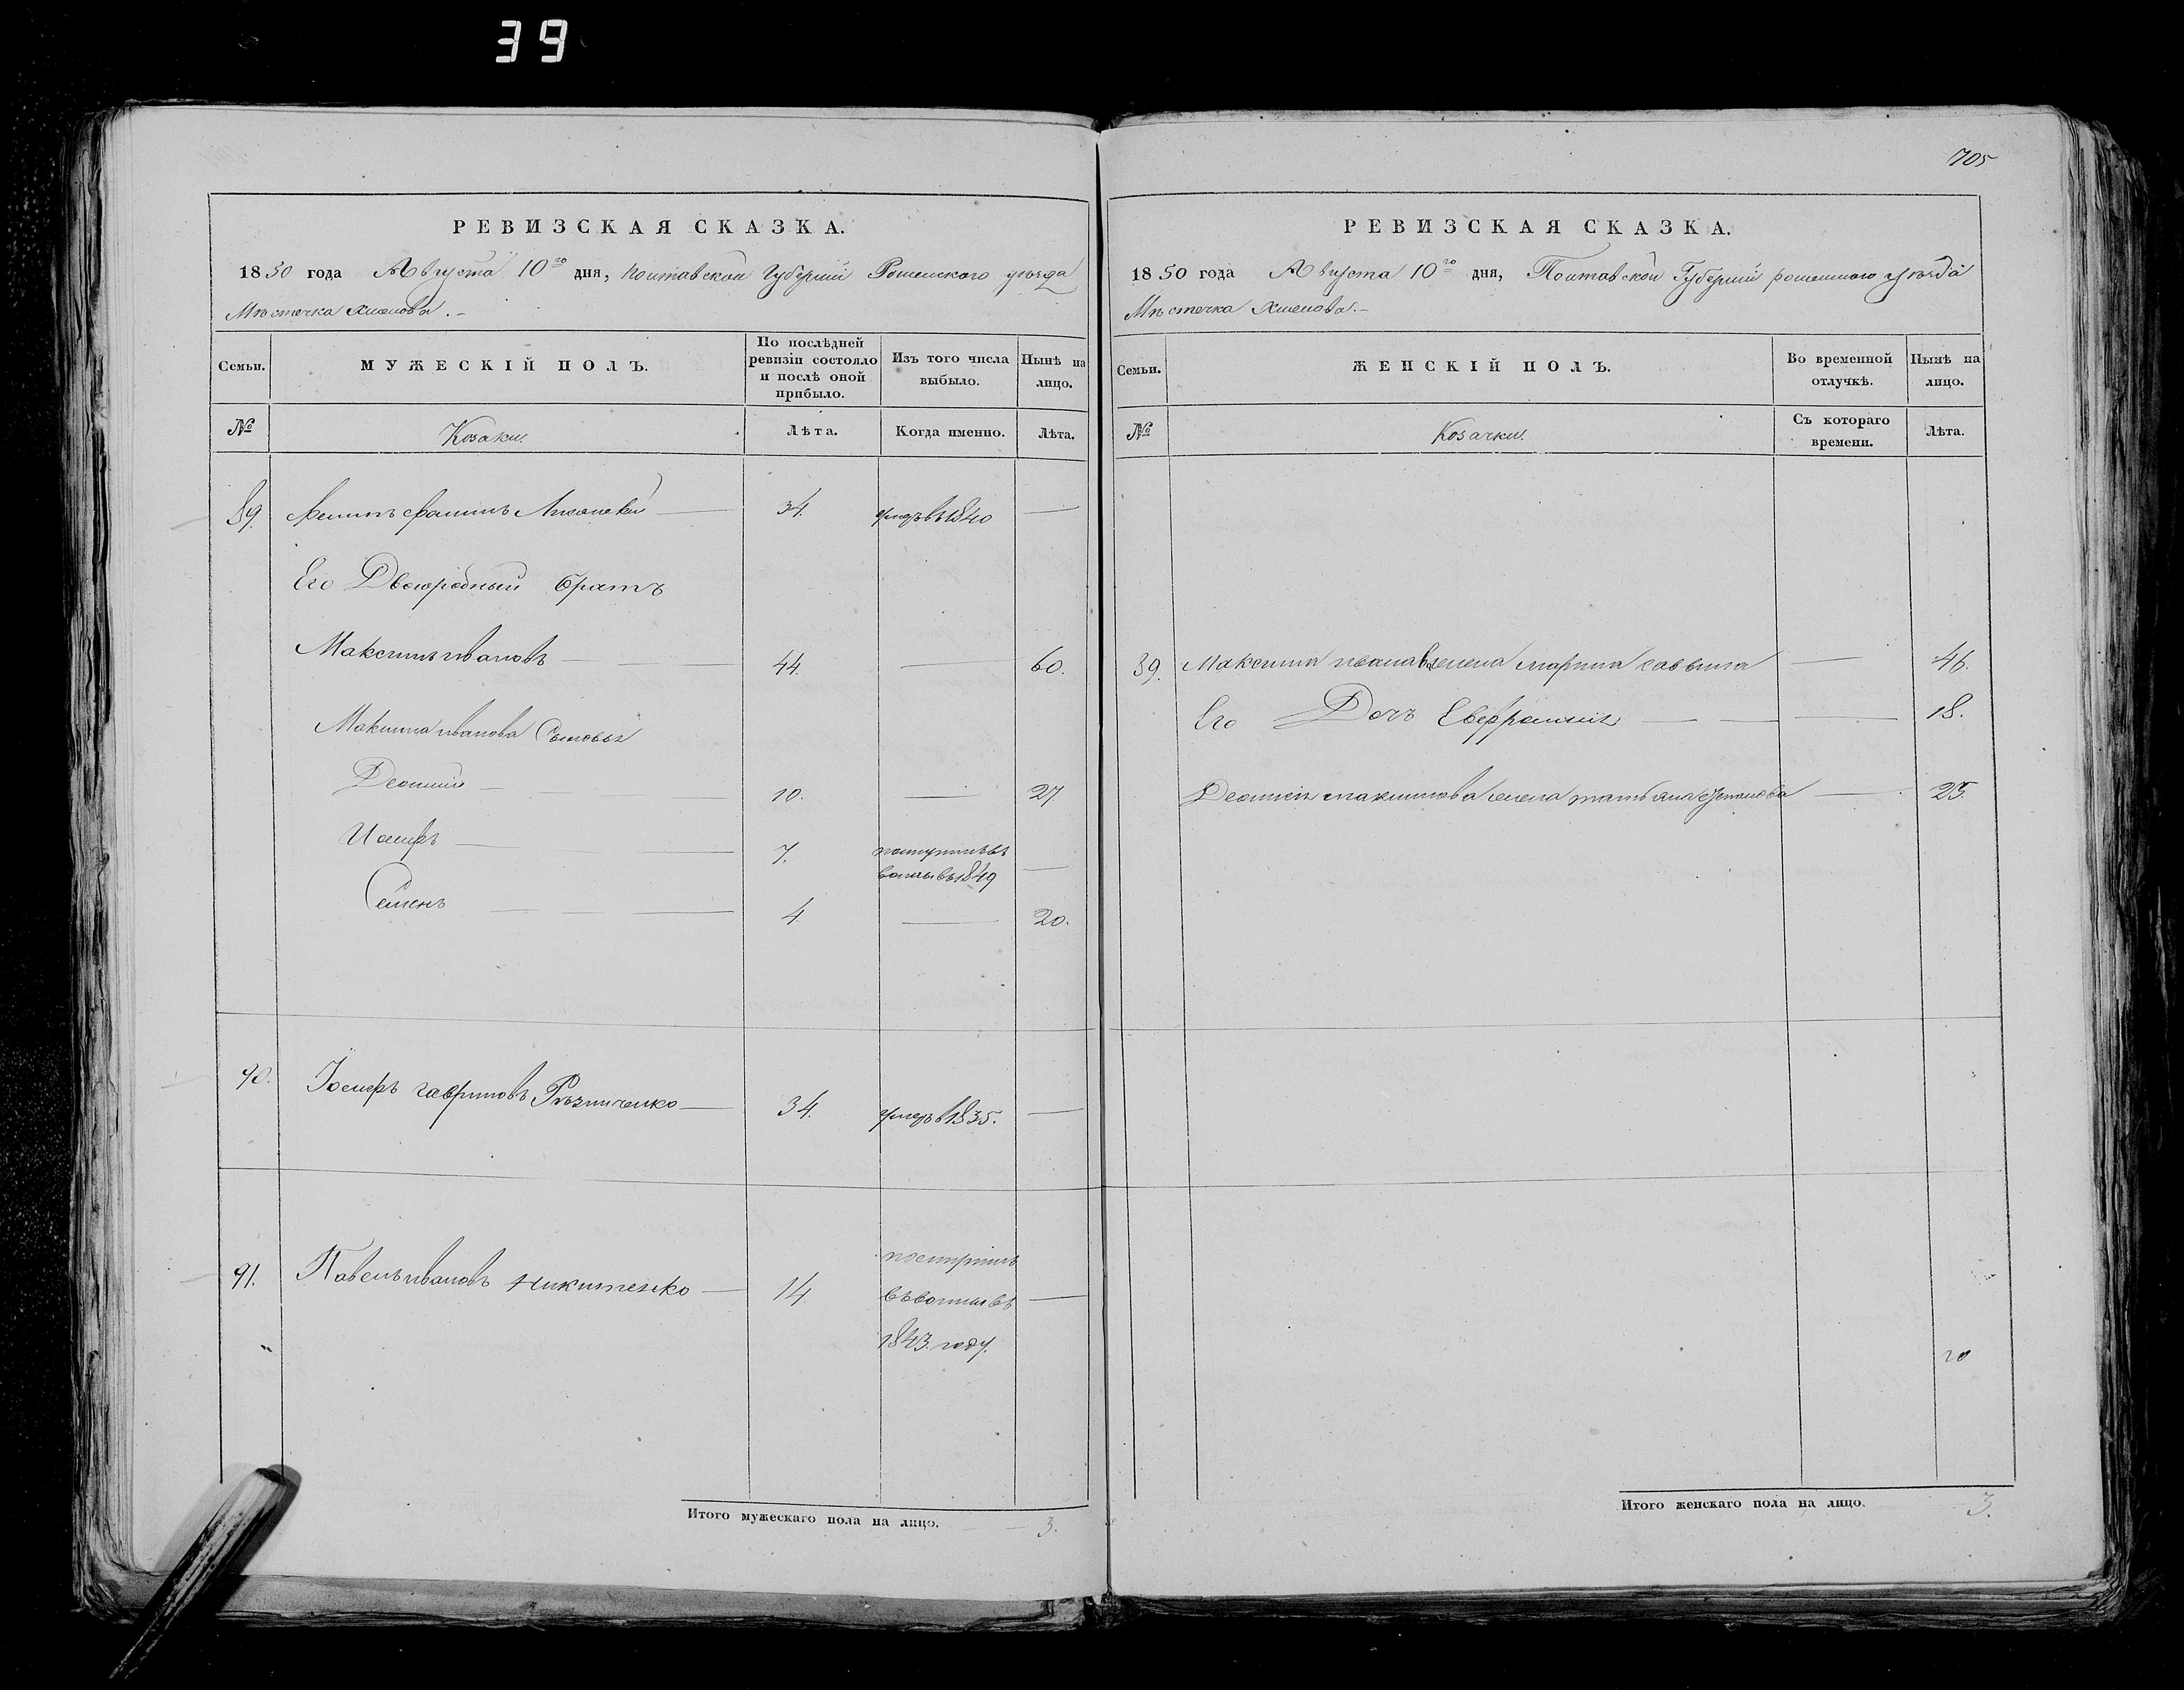 39
705
РЕВИЗСКАЯ СКАЗКА.
1850 года Августа 10го дня, Полтавской Губерніи Роменского уѣзда
Мѣстечка Хмелова.
Семьи.
МУЖЕСКІЙ ПОЛЪ.
По послѣдней ревизіи состояло и послѣ оной прибыло.
Изъ того числа выбыло.
Нынѣ на лицо.
№
Козаки.
Лѣта.
Когда именно.
Лѣта.
89. 34. 1840 —
Его Двоюродный братъ
Максимъ Ивановъ — 44. — 60.
Максима Иванова Сыновья
Леонтій — 10. — 27
Иосифъ — 7. поступилъ въ
1849 —
Семенъ — 4 — 20.
90. Іосифъ Гавриловъ Рѣзниченко — 34. 1835. —
91. Павелъ Ивановъ Никитенко — 14 поступилъ
—
1843. году.
Итого мужескаго пола на лицо. — 3.
РЕВИЗСКАЯ СКАЗКА.
1850 года Августа 10го дня, Полтавской Губерніи роменского уѣзда
Мѣстечка Хмелова.
Семьи.
ЖЕНСКІЙ ПОЛЪ.
Во временной отлучкѣ.
Нынѣ на лицо.
№
Козачки.
Съ котораго времени.
Лѣта.
89. Максима Иванова жена Марина Саввина — 46.
Его Дочь — 18.
жена Татьяна — 25.
20
Итого женскаго пола на лицо. 3.